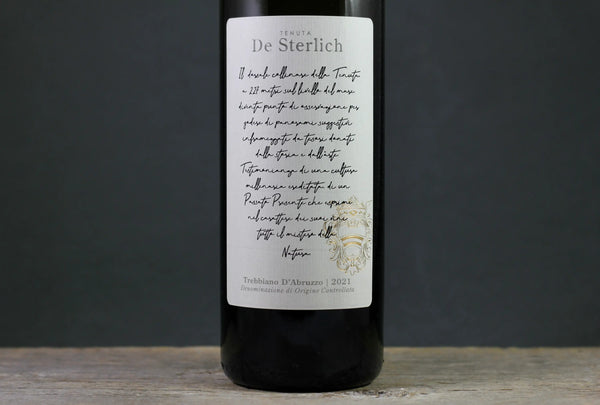 TENUTA
De Sterlich
Il dorsale collinare della Tenuta
a 227 metri sul livello del mare
diventa punto di osservazione per
godere di panorami suggestivi
inframezzati da tesori donati
dalla storia e dall'arte
Testimonianza di una cultura
millenaria ereditata di un
Passato Presente che esprime
nel carattere dei suoi vini
tutto il mistero della
Natura
Trebbiano D'Abruzzo | 2021
Denominazione di Origine Controllata